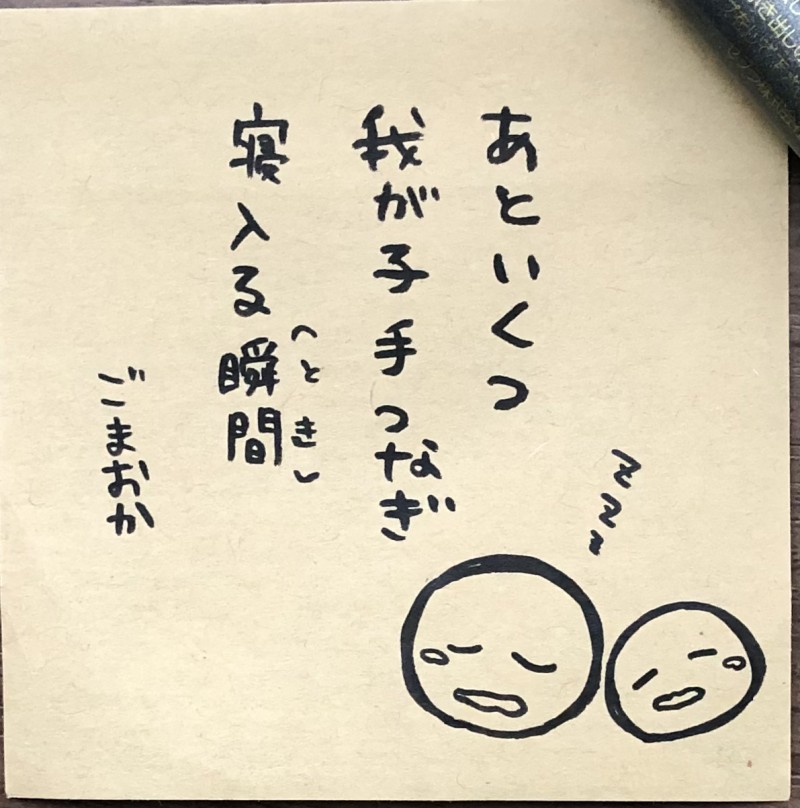 あといくつ
我が子手つなぎ
寝入る瞬間
(とき)
ごまおか
zzz